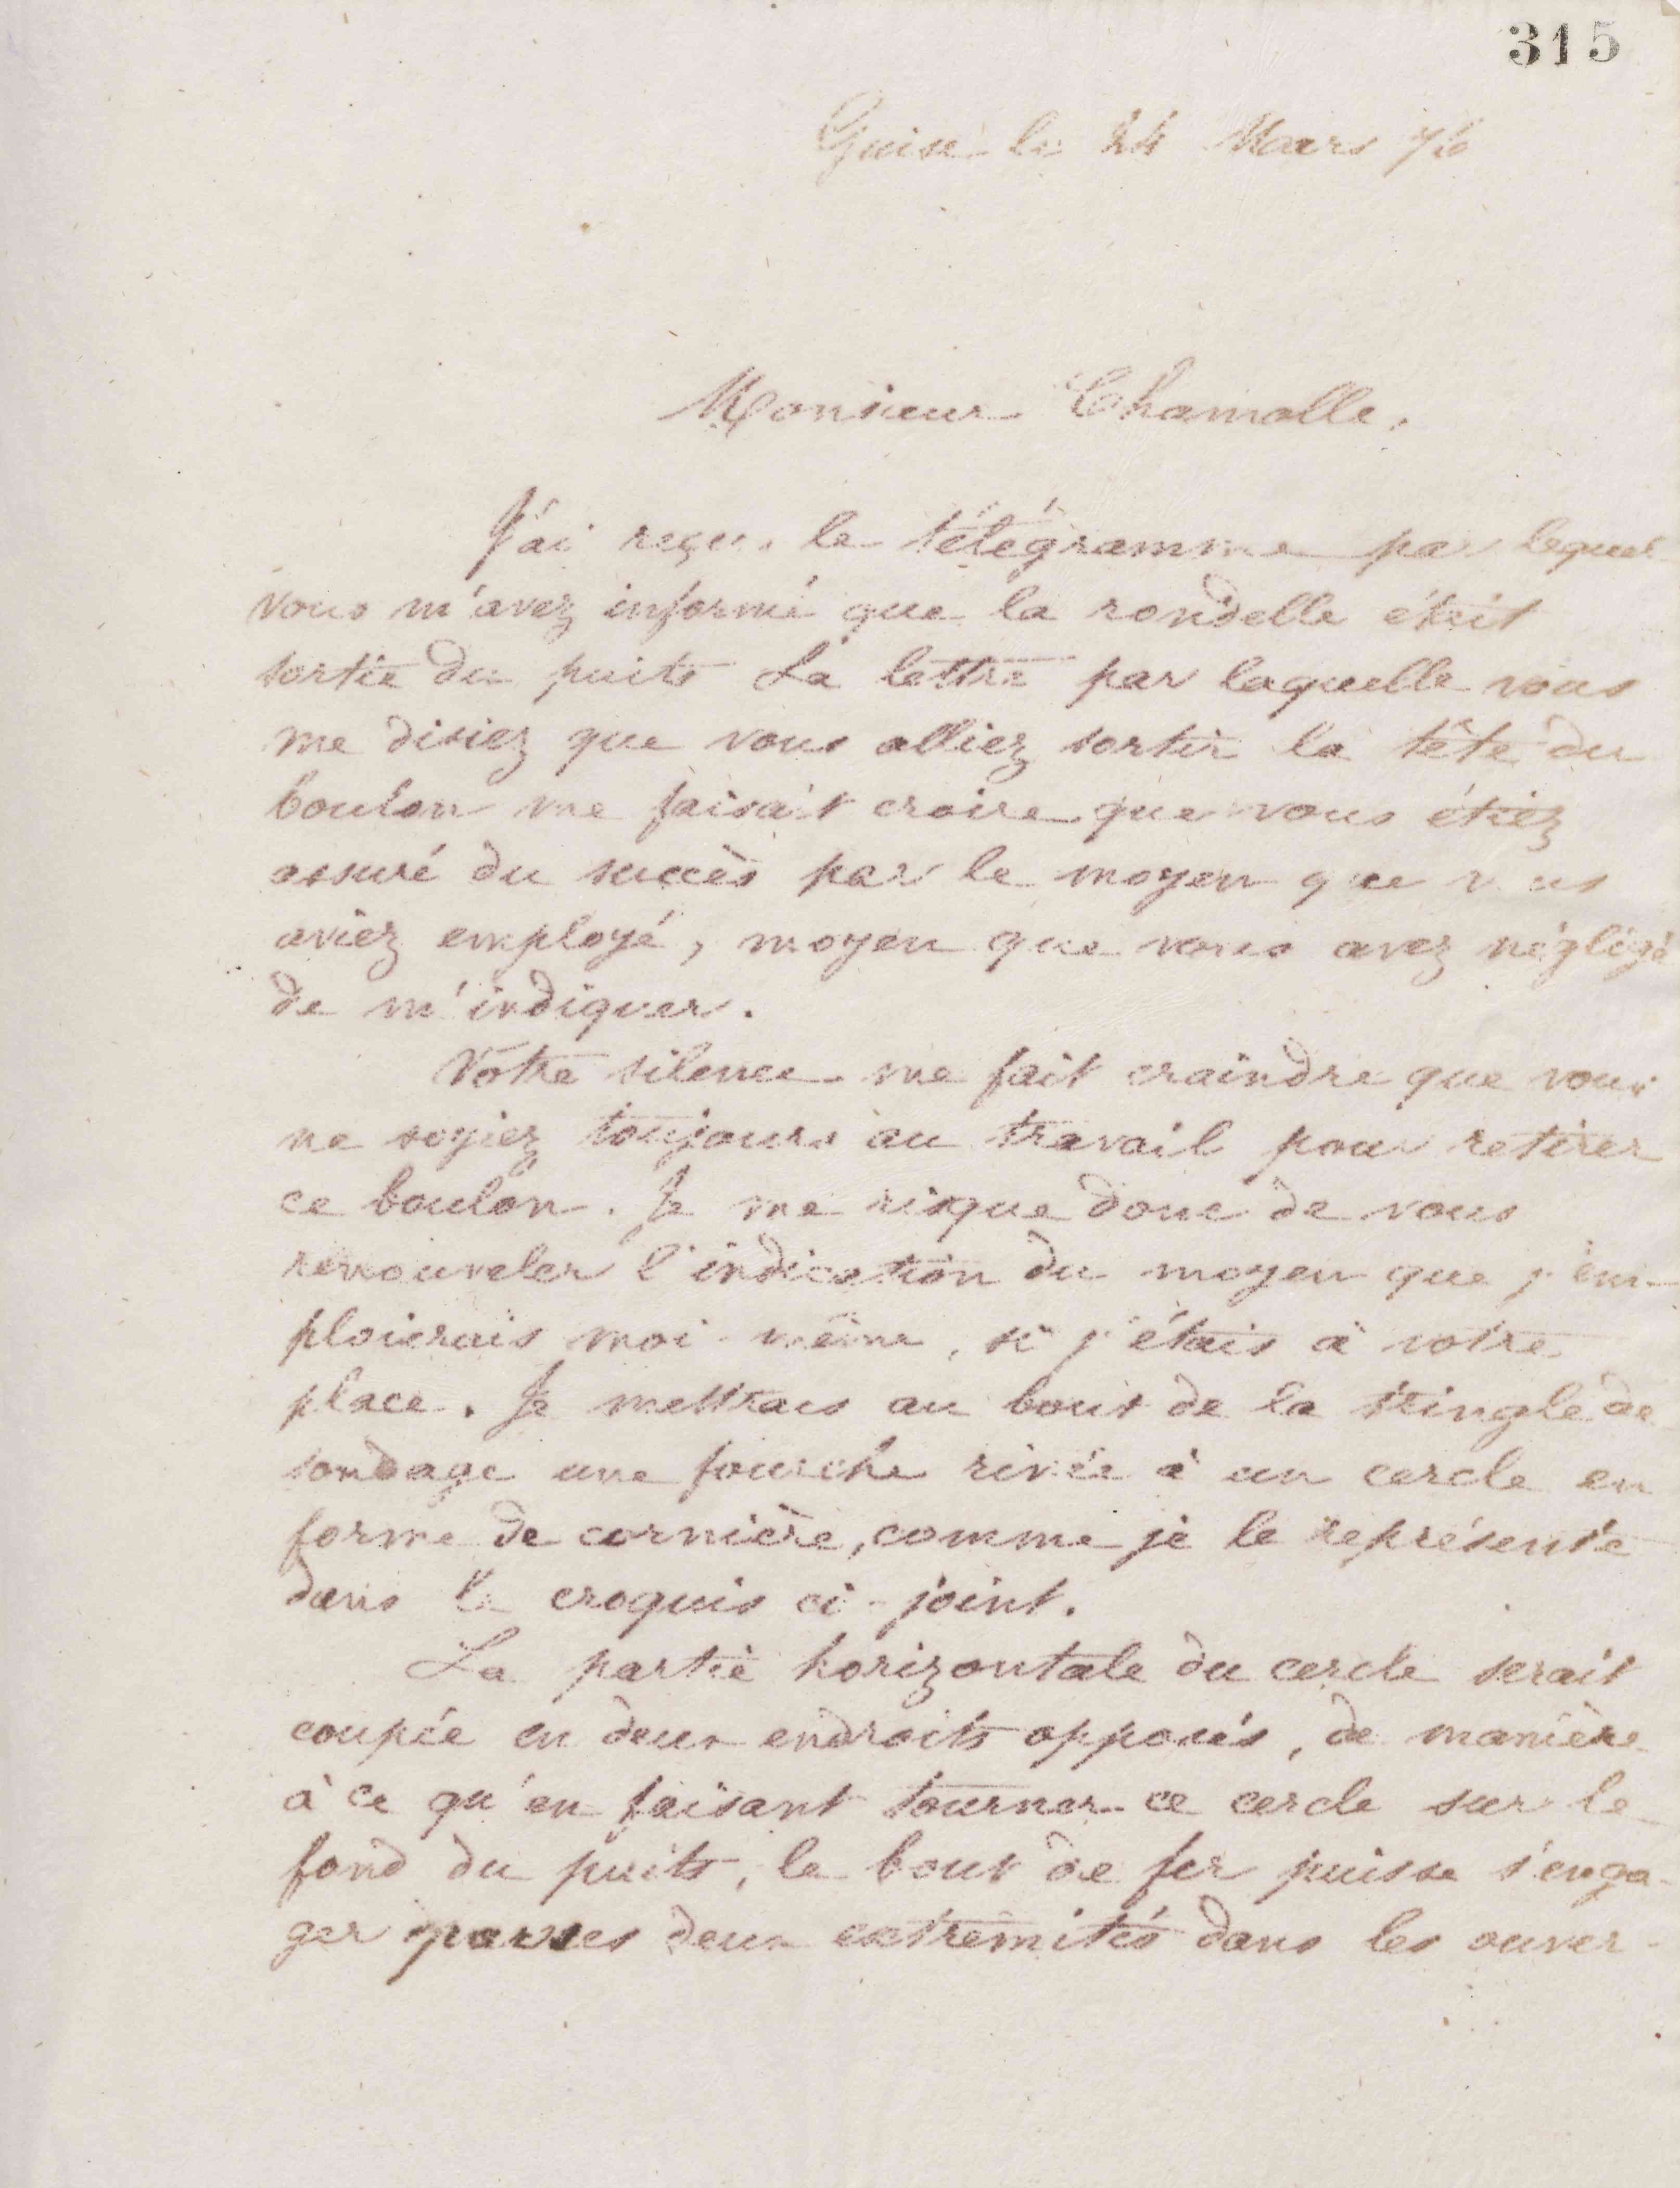 315
Guise le 24 Mars 76
Monsieur Chamolle,
J'ai reçu le télégramme par lequel
vous m'avez informé que la rondelle était
sortie du puits La lettre par laquelle vous
me disiez que vous alliez sortir la tête du
boulon me faisait croire que vous étiez
assuré du succès par le moyen que vous
aviez employé, moyen que vous avez négligé
de m'indiquer.
Votre silence me fait craindre que vous
ne soyiez toujours au travail pour retirer
ce boulon. Je me risque donc de vous
renouveler l'indication du moyen que j'em-
ploierais moi-même, si j'étais à votre
place. Je mettrais au bout de la tringle de
sondage une fourche rivée à un cercle en
forme de cornière, comme je le représente
dans le croquis ci-joint.
La partie horizontale du cercle serait
coupée en deux endroits opposés, de manière
à ce qu'en faisant tourner ce cercle sur le
fond du puits, le bout de fer puisse s'enga-
ger par ses deux extrémités dans les ouver-